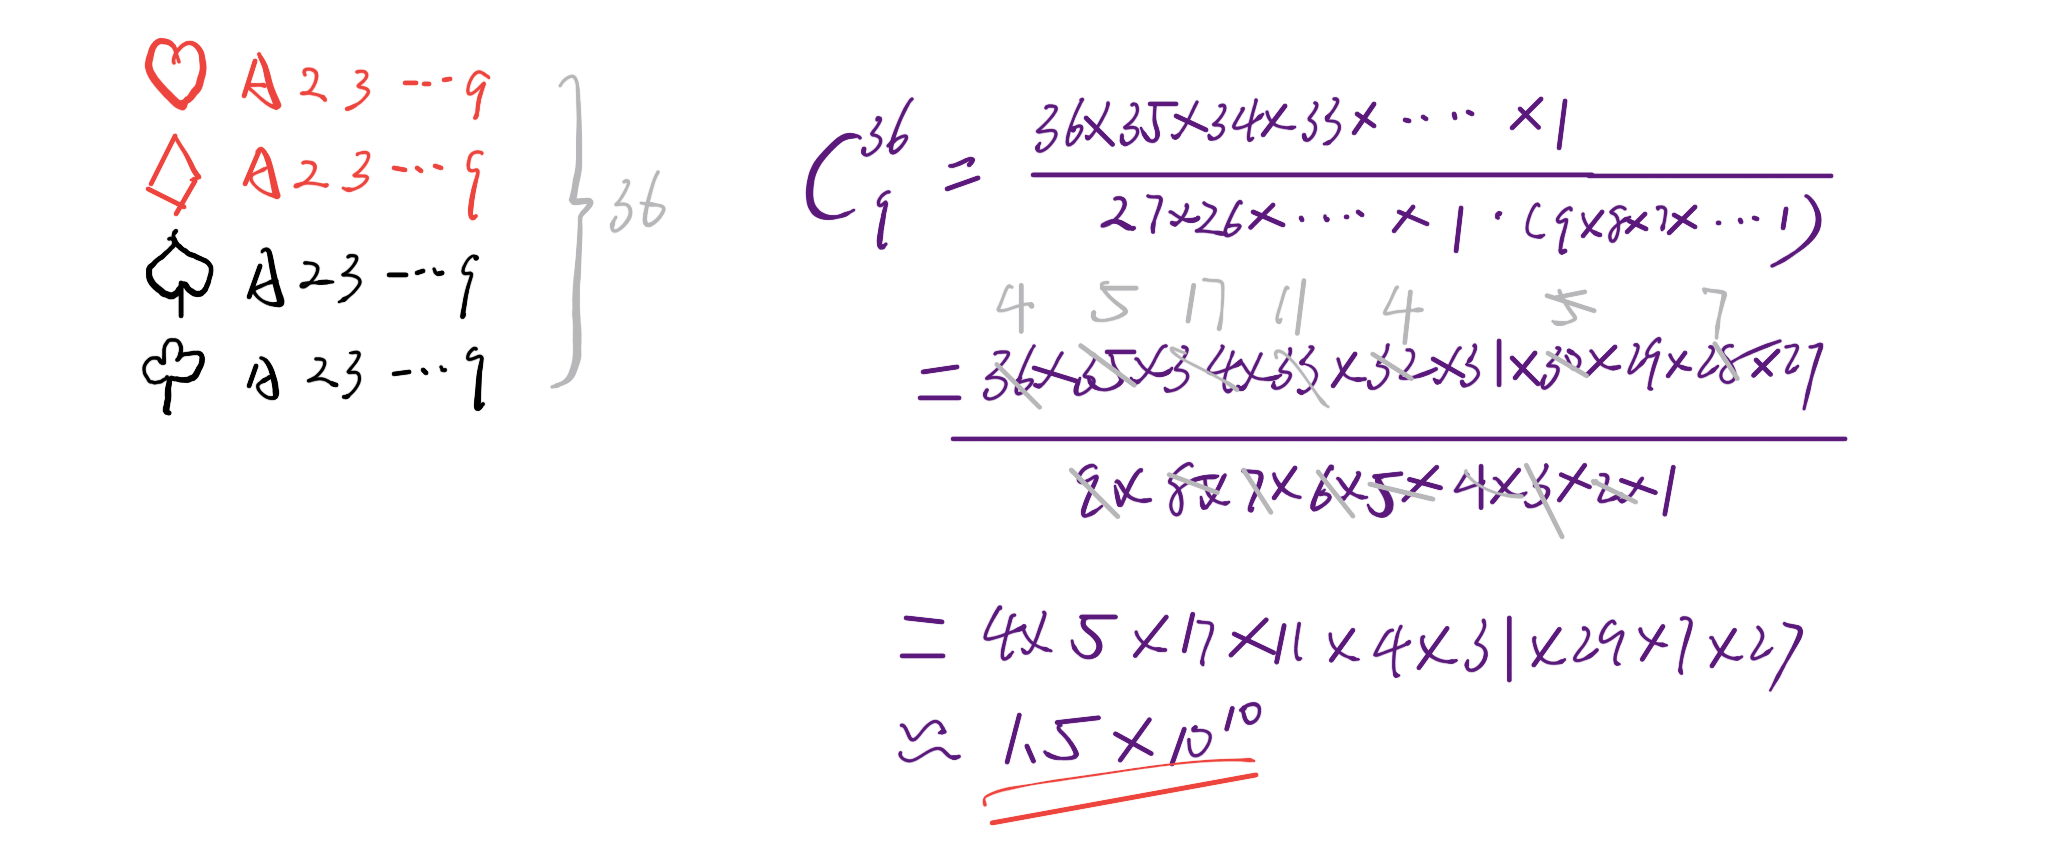 ♡ A 2 3 ... 9
♢ A 2 3 ... 9
♤ A 2 3 ... 9
♧ A 2 3 ... 9
} 36
C^36_9 = 36×35×34×33× ..... ×1
27×26× ..... ×1 · (9×8×7× ... 1)
4 5 17 11 4 5 7
= 36×35×34×33×32×31×30×29×28×27
9×8×7×6×5×4×3×2×1
= 4×5×17×11×4×31×29×7×27
≈ 1.5×10^10